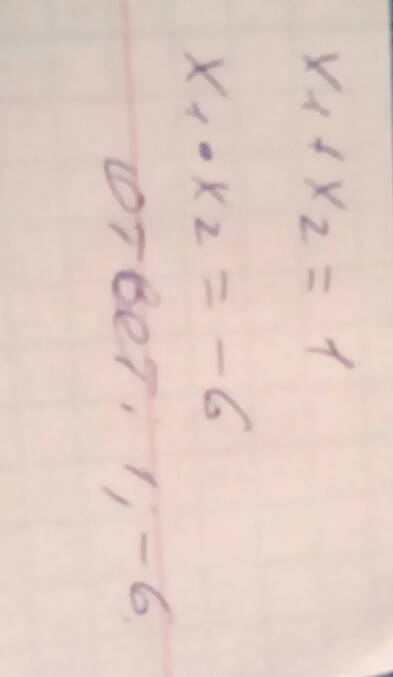 x₁ + x₂ = 1
x₁ • x₂ = -6
Ответ: 1, -6